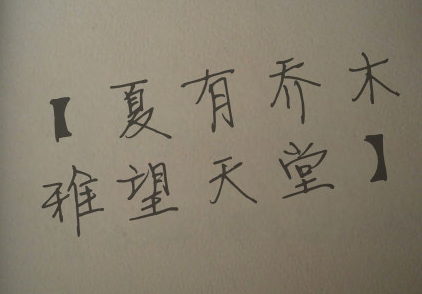 【夏有乔木
雅望天堂】